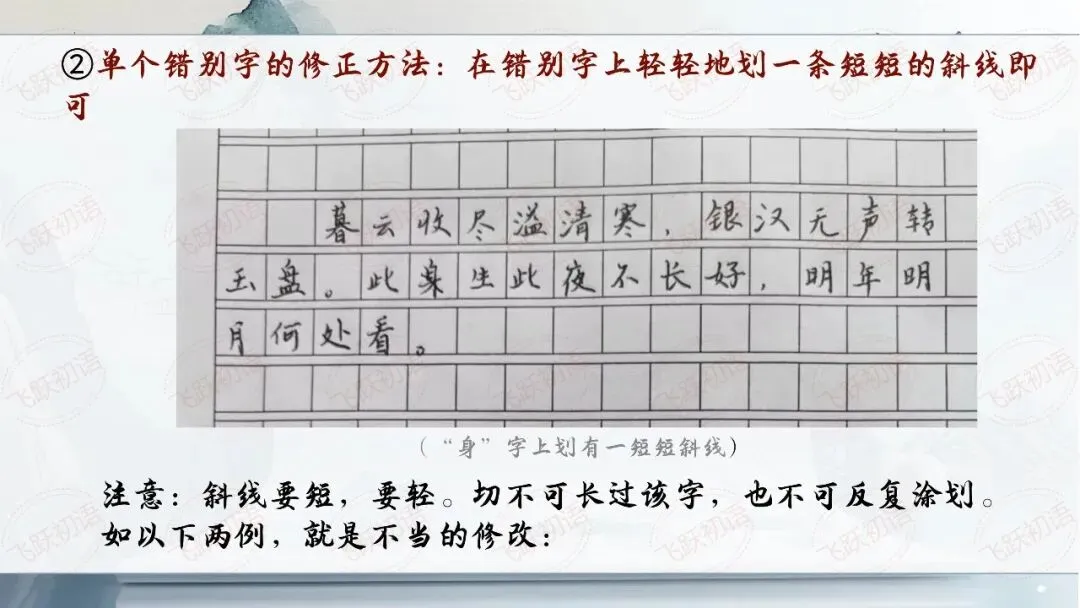 ②单个错别字的修正方法：在错别字上轻轻地划一条短短的斜线即
可
暮云收尽溢清寒，银汉无声转
玉盘。此生此夜不长好，明年明
月何处看。
（“身”字上划有一短短斜线）
注意：斜线要短，要轻。切不可长过该字，也不可反复涂划。
如以下两例，就是不当的修改：
飞跃初语